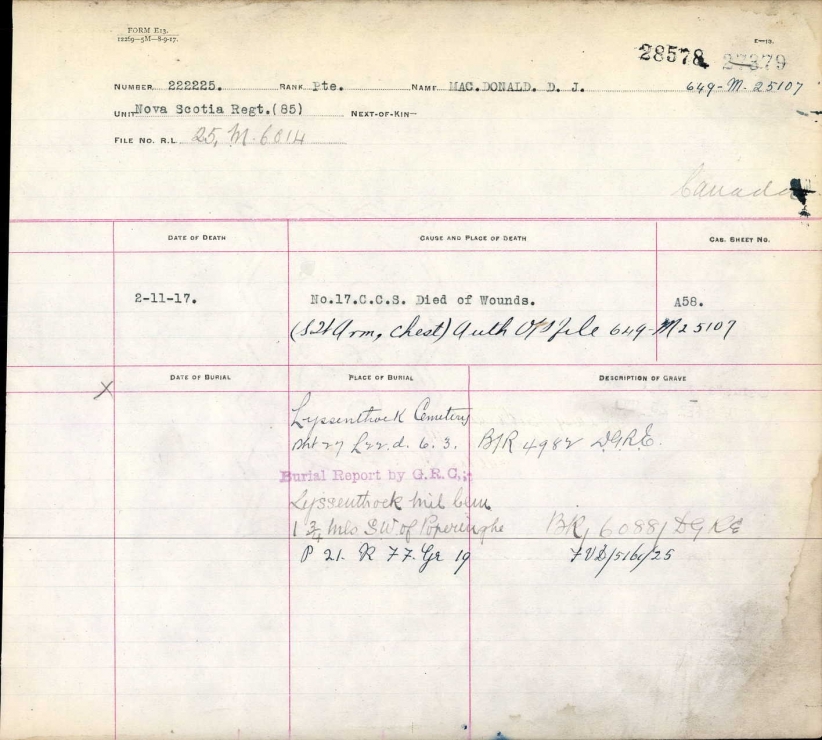 FORM E13.
12269—5M—8-9-17.
E—13.
28578 27379
NUMBER 222225. RANK Pte. NAME MAC.DONALD. D. J.
649-M-25107
UNIT Nova Scotia Regt.(85) NEXT-OF-KIN—
FILE NO. R.L. 25, M. 6014
Canada
DATE OF DEATH CAUSE AND PLACE OF DEATH CAS. SHEET NO.
2-11-17. No.17.C.C.S. Died of Wounds. A58.
Arm, Chest) Auth file 649-M25107
X
DATE OF BURIAL PLACE OF BURIAL DESCRIPTION OF GRAVE
Lyssenthoek Cemetery
Sht 27 L22.d. 6. 3. B/R 4982 D.G.R.E.
Burial Report by G.R.C.;-
Lyssenthoek Mil Cem
1 3/4 Mls SW of Poperinghe BR/ 6088/ DGRE
P 21. R 77. Gr 19